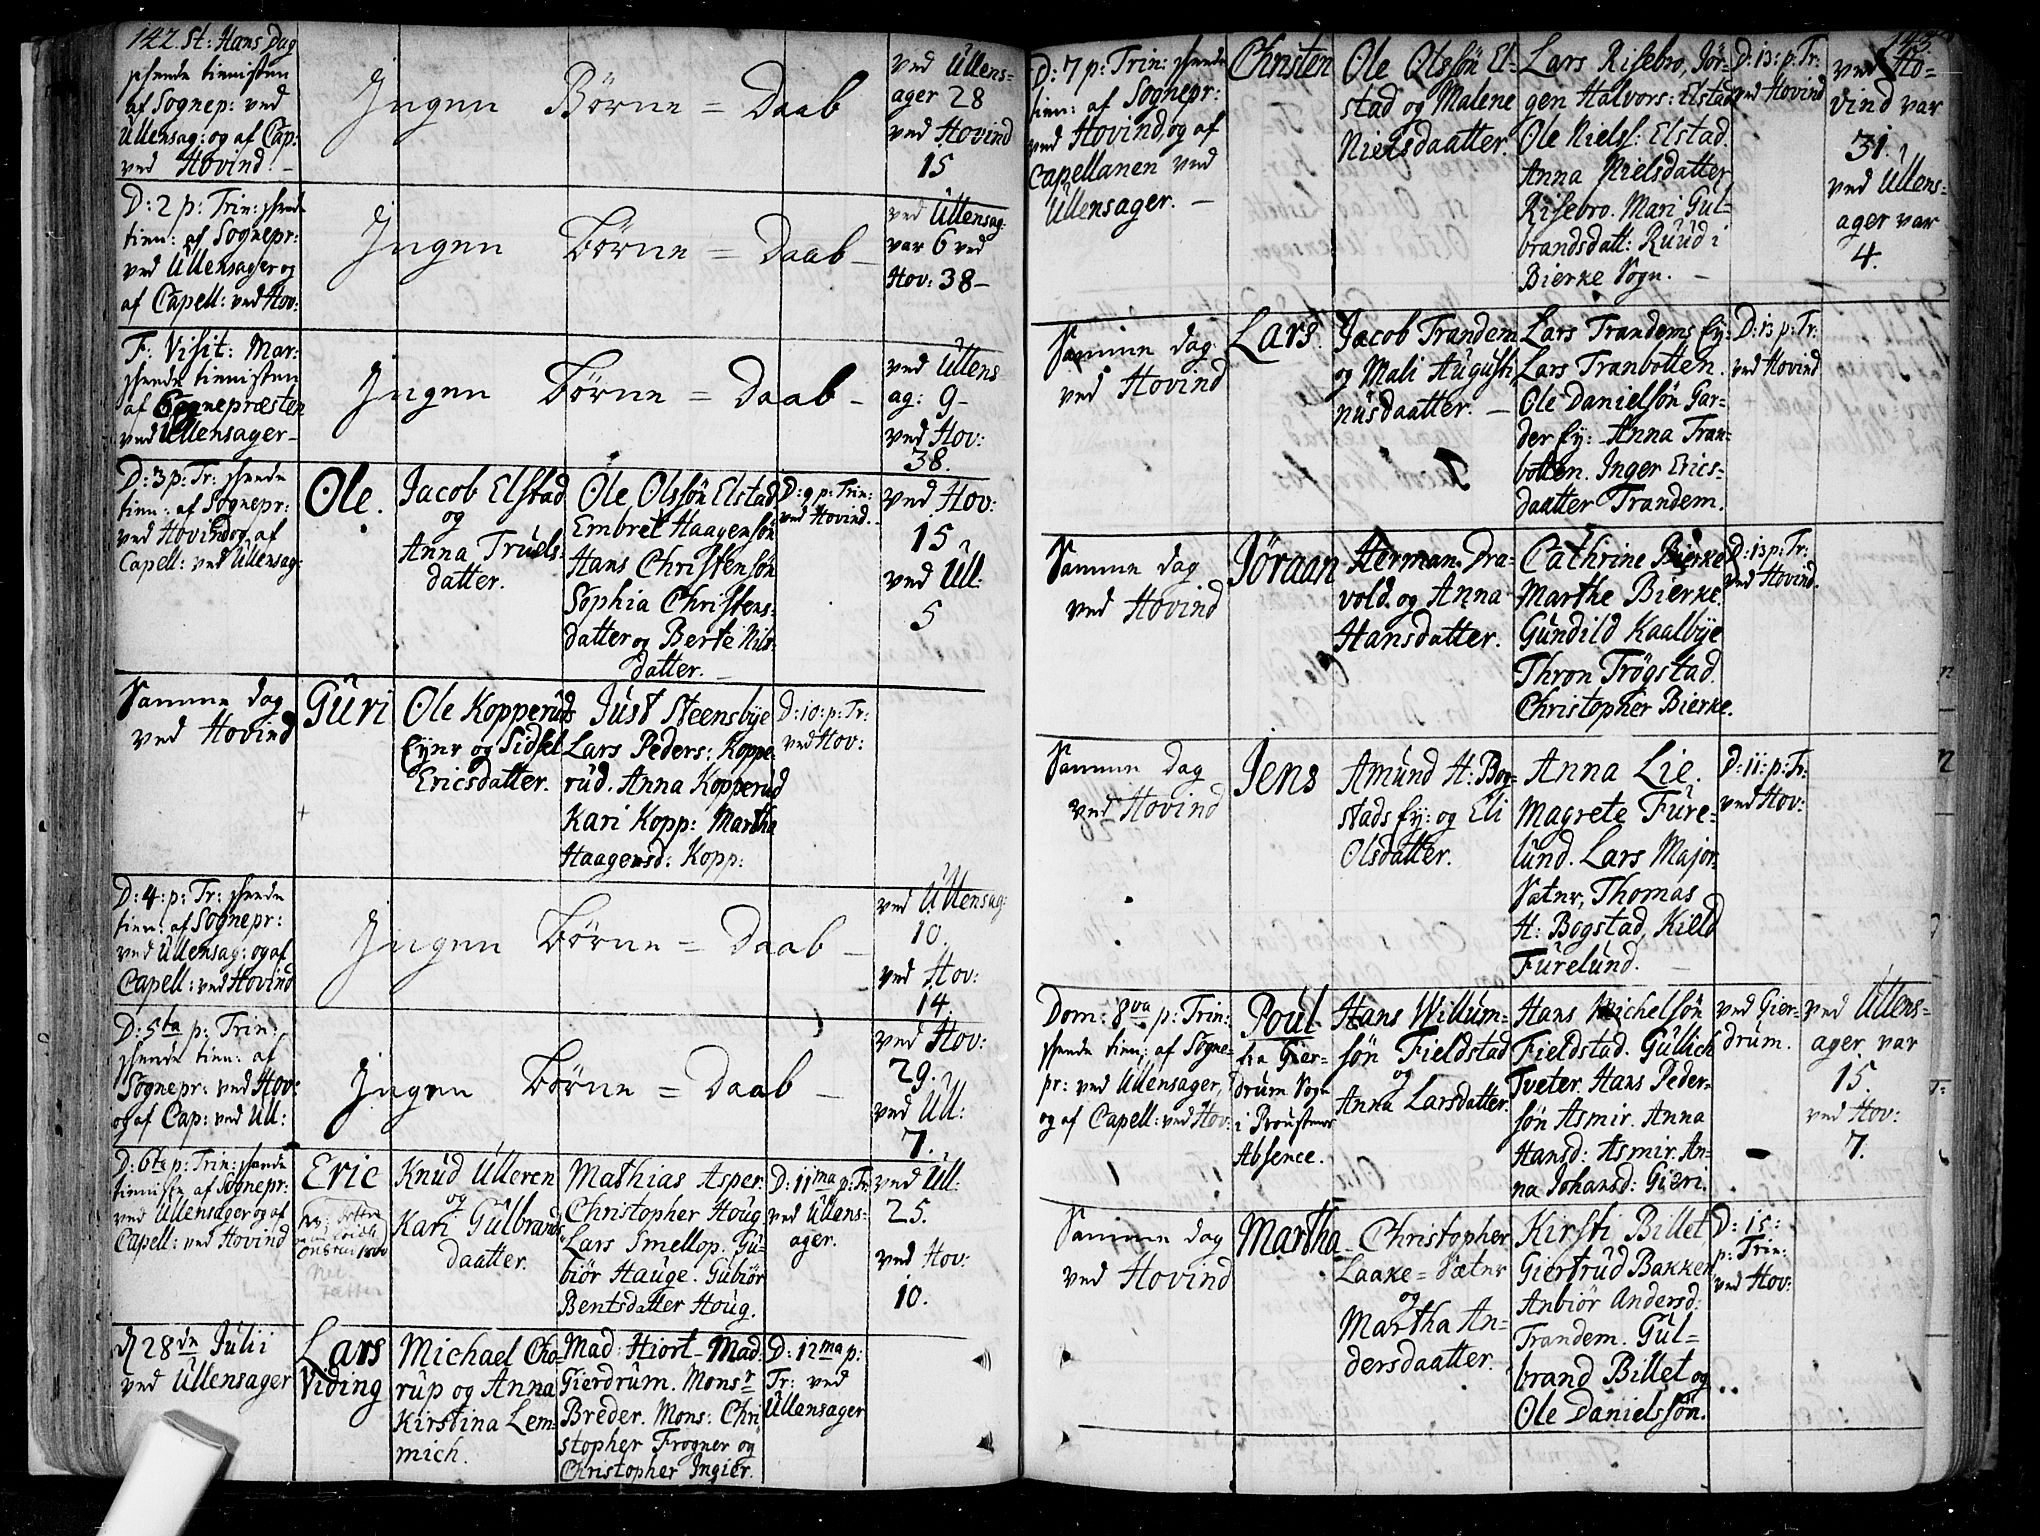 142. St: Hans Dag
skeede tienisten
af Sognep: ved
Ullensag: og af Cap:
ved Hovind. –
Ingen Börne = Daab
ved Ullens-
ager 28
ved Hovind
15
D: 2 p: Trin: skeede
tien: af Sognepr:
ved Ullensager og
af Capell: ved Hov:
Ingen Börne = Daab –
ved Ullensag:
var 6 ved
Hov: 38 –
F: Visit: Mar:
skeede tienisten
af Sognepræsten
ved Ullensager –
Ingen Börne = Daab –
ved Ullens
ag: 9 –
ved Hov:
38.
D: 3 p: Tr: skeede
tien: af Sognepr:
ved Hovind og af
Capell: ved Ullensag:
Ole.
Jacob Elstad
og
Anna Truels-
datter.
Ole Olssön Elstad
Embret Haagensön
Hans Christensön
Sophia Christens-
datter og Berte Nils-
datter. –
D: 9 p: Trin:
ved Hovind.
ved Hov:
15
ved Ull:
5
Samme dag
ved Hovind
Guri
Ole Kopperuds
Eynr og Sidsel
Ericsdatter.
Just Steensbye
Lars Peders: Koppe-
rud. Anna Kopperud
Kari Kopp: Martha
Haagensd: Kopp:
D: 10: p: Tr:
ved Hov:
D: 4: p: Tr: skeede
tien: af Sognepr:
ved Ullensag: og af
Capell: ved Hovind
Ingen Börne = Daab –
ved Ullensag:
10.
ved Hov:
14.
D: 5ta p: Trin:
skeede tien: af
Sognepr: ved Hov:
og af Cap: ved Ull:
Ingen Börne = Daab –
ved Hov:
29.
ved Ull:
7.
D: 6ta p: Trin: skeede
tieniste af Sognepr:
ved Ullensager og af
Capell: ved Hovind
Eric
Knud Ulleren
og
Kari Gulbrands
daatter.
Mathias Asper.
Christopher Houg
Lars Smellop. Gu-
biör Hauge. Gubiör
Bentsdatter Houg.
D: 11ma p: Tr:
ved Ullens-
ager.
ved Ull:
25.
ved Hov:
10.
D 28de Julii
ved Ullensager
Lars
Viding
Michael Cho-
rup og Anna
Kirstina Lem-
mich.
Mad: Hiort – Mad:
Gierdrum. Monsr
Breder. Mons: Chri
stopher Frogner og
Christopher Ingier.
D: 12ma p:
Tr: ved
Ullensager
143.
D: 7 p: Trin: skeede
tien: af Sognepr:
ved Hovind og af
Capellanen ved
Ullensager. –
Christen
Ole Olssön El-
stad og Malene
Nielsdaatter.
Lars Risebro, Jör-
gen Halvors: Elstad
Ole Niels: Elstad.
Anna Nielsdatter
Risebro. Mari Gul-
brandsdatt: Ruud i
Bierke Sogn. –
D: 13: p: Tr:
ved Hovind
ved Ho-
vind var
31.
ved Ullens-
ager var
4.
Samme dag
ved Hovind
Lars.
Jacob Trandem
og Mali Augusti
nusdaatter. –
Lars Trandems Ey:
Lars Tranbotten.
Ole Danielsön Gar-
der Ey: Anna Tran-
botten. Inger Erics-
daatter Trandem.
D: 13 p: Tr:
ved Hovind
Samme dag
ved Hovind
Jöraan
Herman Dra-
vold. og Anna
Hansdatter.
Cathrine Bierke
Marthe Bierke.
Gundild Kaalbÿe
Thron Trögstad.
Christopher Bierke.
D: 13 p: Tr:
ved Hovind.
Samme dag
ved Hovind
Jens
Amund H: Bog-
stads Ey: og Eli
Olsdatter.
Anna Lie.
Magrete Fure-
lund. Lars Major-
Sætnr, Thomas
H: Bogstad, Kield
Furelund. –
D: 11: p: Tr:
ved Hov:
Dom: 8va p: Trin:
skeede tien: af Sogne-
pr: ved Ullensager,
og af Capell: ved Hov:
Poul
fra Gier-
drum Sogn
i Proustens
Absence.
Hans Willum-
sön Fieldstad
og
Anna Larsdatter.
Hans Michelsön
Fieldstad. Gullich
Tveter. Hans Peder-
sön Asmir. Anna
Hansd: Asmir. An-
na Johansd: Gieri.
ved Gier-
drum.
ved Ullens-
ager var
15.
ved Hov:
7.
Samme dag
ved Hovind
Martha
Christopher
Laake = Sætnr
og
Martha An-
dersdaatter.
Kirsti Billet,
Giertrud Bakken
Anbiör Andersd:
Trandem. Gul-
brand Billet og
Ole Danielssön.
D: 15:
p: Trin:
ved Hov: